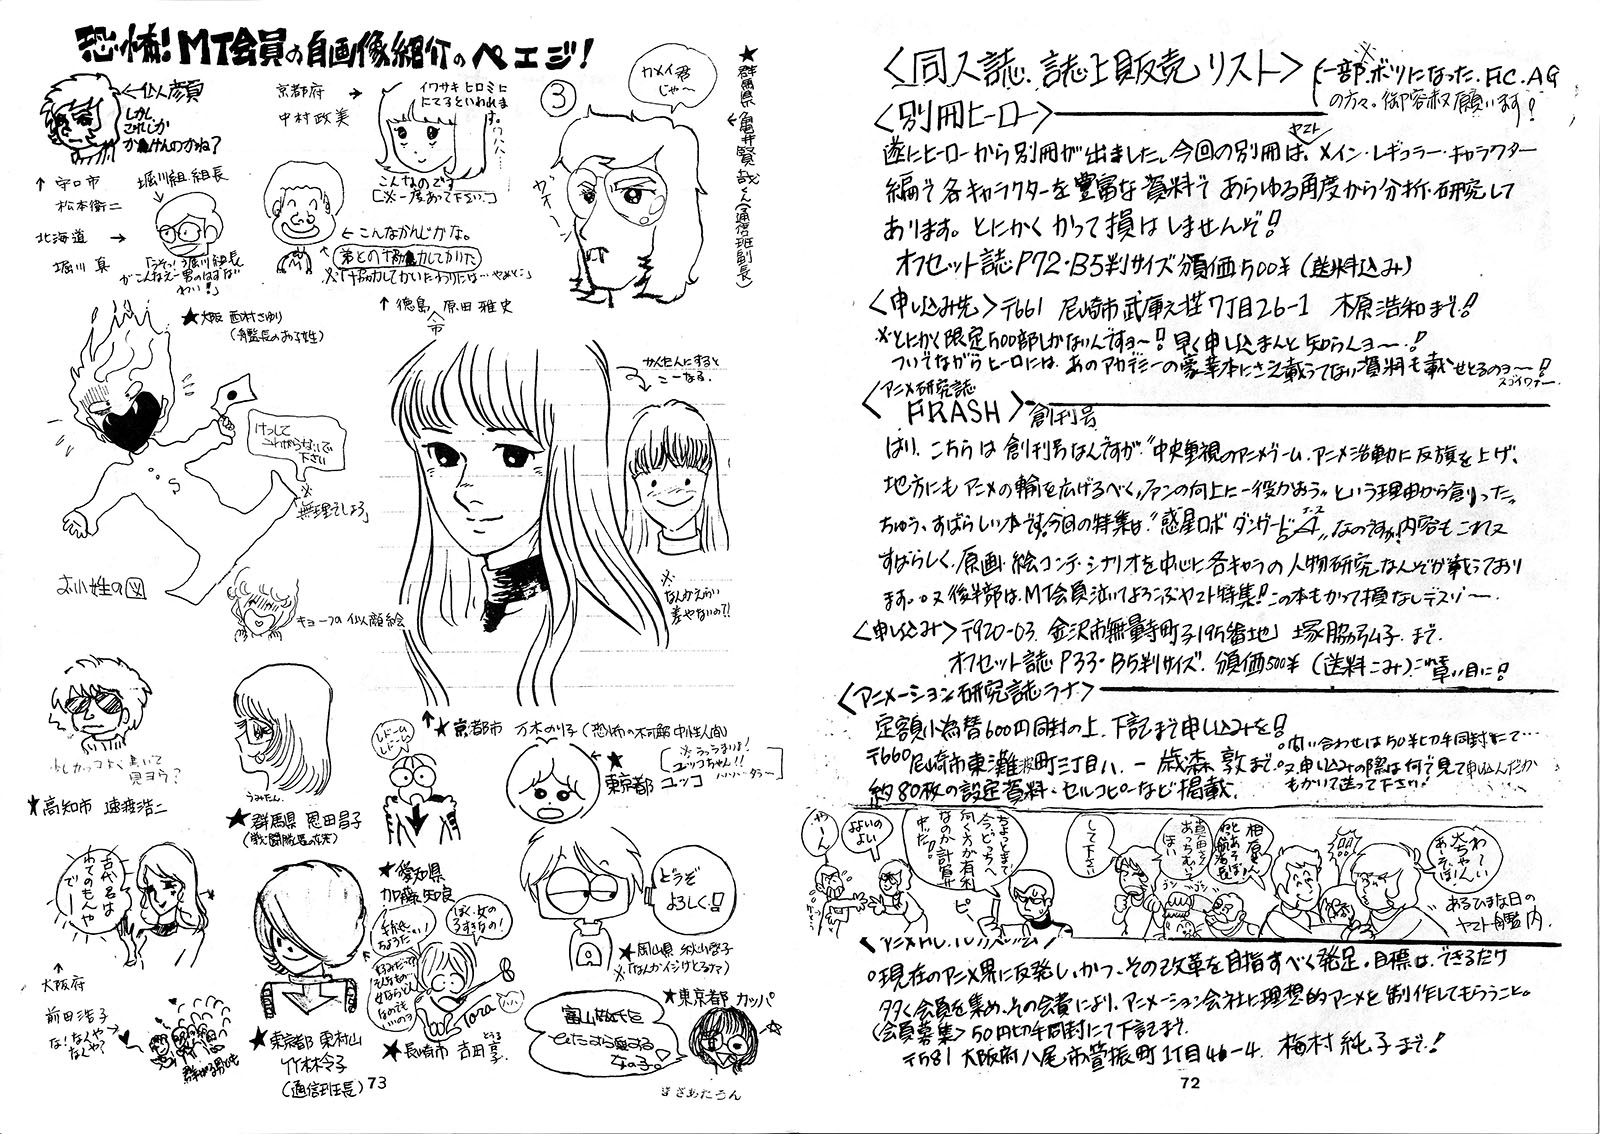 恐怖!MT会員の自画像紹介のペエジ!
←似顔
しかし
これしか
かけんのかね?
京都府 →
中村政美
イワサキヒロミに
にてるといわれま
す。
こんなのです
[※一度あって下さい]
③
カメイ君
じゃ〜
★群馬県
←亀井賢哉くん(通信班副長)
ガオーン
↑守口市
松本衛二
堀川組組長
北海道 →
堀川真
「うそっ!堀川組長
がこんなえー男のはずない
わい!」
←こんなかんじかな。
↑弟との協力してかいた
↑徳島市 原田雅史
★大阪 西村さゆり
けっして
これがらないで
下さい
※
無理でしょう」
お小姓の図
キョーフの似顔絵
かんたんにすると
こーなる。
※
なんかえらい
差やないの?!
少しカッコよく書いて
見ヨウ?
★高知市 遠渡浩二
うみたん。
★群馬県 恩田昌子
↑★京都市 万木のり子(恐怖の不可解中性人間)
★
東京都 ユッコ
古代君は
わてのもんや
でー
↑
大阪府
前田浩子
な!なんや
なんや?
★東京都東村山
竹林令子
(通信班長)
73
★愛知県
加藤知良
ぼく、女の
うずきなの!
Tora
★長崎市 吉田享子
どうぞ
よろしく!
★岡山県 秋山啓子
★東京都 カッパ
富山敬氏を
ひたすら愛する
女の子。
<同人誌.誌上販売リスト>
※一部、ボツになった、F.C.AG
の方々。御容赦願います!
<別冊ヒーロー>
遂にヒーローから別冊が出ました。今回の別冊は、ヤマトメイン・レギュラー・キャラクター
編で各キャラクターを豊富な資料であらゆる角度から分析・研究して
あります。とにかくかって損はしませんぞ!
オフセット誌P72・B5判サイズ頒価500¥(送料込み)
<申し込み先>〒661 尼崎市武庫之荘7丁目26-1 木原浩和まで!
※とにかく限定500部しかないんですヨ〜!早く申し込まんと知らんヨ〜!
ついでながらヒーローには、あのアカデミーの豪華本にさえ載ってない資料も載せとるのヨ〜!
スゴイワァー
<アニメ研究誌
FRASH>創刊号
はり、こちらは創刊号なんですが〝中央重視のアニメブーム、アニメ活動に反旗を上げ、
地方にもアニメの輪を広げるべく、ファンの向上に一役かおう〟という理由から創りった〟
ちゅう、すばらしい本です!今回の特集は、〝惑星ロボダンガードA〟なのですが、内容もこれ又
すばらしく、原画・絵コンテ・シナリオを中心に各キャラの人物研究なんぞが載っており
ます。又後半部は、MT会員泣いてよろこぶヤマト特集!この本もかって損なしデスゾ〜。
<申し込み>〒920-03 金沢市無量寺町ヲ195番地 塚脇弘子まで。
オフセット誌P33・B5判サイズ、頒価500¥(送料こみ)
<アニメーション研究誌ラナ>
定額小為替600円同封の上、下記まで申し込みを!
〒660 尼崎市東灘波町三丁目八.一 歳森敦まで。
約80枚の設定資料・セルコピーなど掲載。
○問い合わせは50¥切手同封にて…
○又申し込みの際は何で見て申し込んだか
もかいて送って下さい!
わーい
大ちゃん
あーそぼ!
相原さん
あーそぼ
真田さん
あっちむいて
ほい
して下さい
ちょっとまて
今、どっちへ
向く方が有利
なのか計算
中だ!
ピ、
よよいの
よい
やーん
あるひまな日の
ヤマト艦内。
○現在のアニメ界に反発し、かつ、その改革を目指すべく発足。目標は、できるだけ
多く会員を集め、その会費により、アニメーション会社に理想的アニメを制作してもらうこと。
<会員募集>50円切手同封にて下記まで。
〒581 大阪府八尾市萱振町1丁目46-4 梅村純子まで!
72